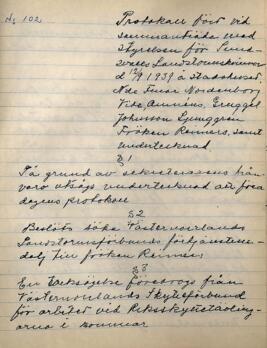 № 102
Protokoll förd vid
sammanträde med
styrelsen för Sund-
svalls Landstormskvinnor
d 12/9 1939 å stadshuset.
Nde Fruar Nordenborg
Johnsson Ljunggren
Fröken Renners, samt
undertecknad
§ 1
På grund av sekreterarens från-
varo utsågs undertecknad att föra
dagens protokoll
§ 2
Beslöts söka Västernorrlands
Landstormsförbunds förtjänstme-
dalj till fröken Renners
§ 3
En tacksägelse föredrogs från
Västernorrlands Skytteförbund
för arbetet vid Riksskyttetävling-
arna i sommar